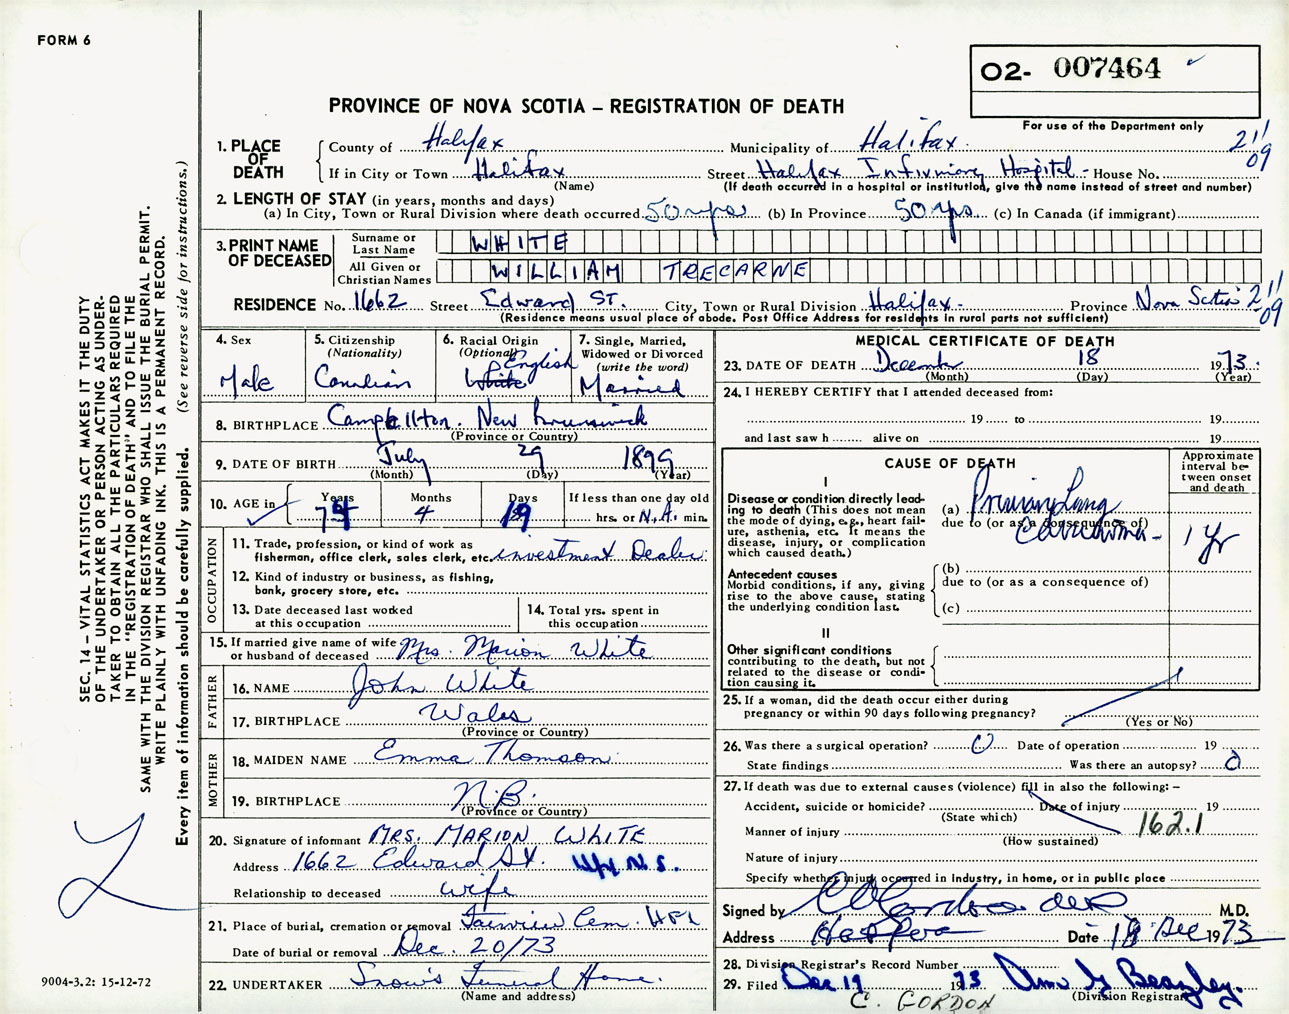 FORM 6
O2- 007464
For use of the Department only
PROVINCE OF NOVA SCOTIA – REGISTRATION OF DEATH
1. PLACE OF DEATH
County of Halifax Municipality of Halifax
If in City or Town Halifax (Name) Street Halifax Infirmary Hospital - House No.
(If death occurred in a hospital or institution, give the name instead of street and number)
2 11
09
2. LENGTH OF STAY (in years, months and days)
(a) In City, Town or Rural Division where death occurred 50 yrs (b) In Province 50 yrs (c) In Canada (if immigrant)
3. PRINT NAME OF DECEASED
Surname or Last Name WHITE
All Given or Christian Names WILLIAM TRECARNE
RESIDENCE No. 1662 Street Edward ST. City, Town or Rural Division Halifax - Province Nova Scotia 2 11
09
(Residence means usual place of abode. Post Office Address for residents in rural parts not sufficient)
4. Sex
Male
5. Citizenship
(Nationality)
Canadian
6. Racial Origin
(Optional)
English
White
7. Single, Married, Widowed or Divorced
(write the word)
Married
8. BIRTHPLACE Campbellton. New Brunswick
(Province or Country)
9. DATE OF BIRTH July 29 1899
(Month) (Day) (Year)
10. AGE in Years Months Days If less than one day old
74 4 19 hrs. or N.A. min.
OCCUPATION
11. Trade, profession, or kind of work as
fisherman, office clerk, sales clerk, etc. investment Dealer
12. Kind of industry or business, as fishing,
bank, grocery store, etc.
13. Date deceased last worked
at this occupation
14. Total yrs. spent in
this occupation
15. If married give name of wife
or husband of deceased Mrs. Marion White
FATHER
16. NAME John White
17. BIRTHPLACE Wales
(Province or Country)
MOTHER
18. MAIDEN NAME Emma Thomson
19. BIRTHPLACE N.B.
(Province or Country)
20. Signature of informant MRS. MARION WHITE
Address 1662 Edward St. Hfx N.S.
Relationship to deceased wife
21. Place of burial, cremation or removal Fairview Cem. Hfx
Date of burial or removal Dec. 20/73
22. UNDERTAKER Snow's Funeral Home.
(Name and address)
MEDICAL CERTIFICATE OF DEATH
23. DATE OF DEATH December 18 1973.
(Month) (Day) (Year)
24. I HEREBY CERTIFY that I attended deceased from:
19 to 19
and last saw h alive on 19
CAUSE OF DEATH
Approximate interval between onset and death
I
Disease or condition directly leading to death (This does not mean the mode of dying, e.g., heart failure, asthenia, etc. It means the disease, injury, or complication which caused death.)
(a) Primary Lung
due to (or as a consequence of)
Carcinoma - 1 yr
Antecedent causes
Morbid conditions, if any, giving rise to the above cause, stating the underlying condition last.
(b)
due to (or as a consequence of)
(c)
II
Other significant conditions
contributing to the death, but not related to the disease or condition causing it.
25. If a woman, did the death occur either during
pregnancy or within 90 days following pregnancy?
(Yes or No)
26. Was there a surgical operation? 0 Date of operation 19
State findings Was there an autopsy? 0
27. If death was due to external causes (violence) fill in also the following: –
Accident, suicide or homicide? Date of injury 19
(State which)
Manner of injury 162.1
(How sustained)
Nature of injury
Specify whether injury occurred in industry, in home, or in public place
Signed by M.D.
Address Date 18 Dec 1973
28. Division Registrar's Record Number
29. Filed Dec 19 1973 Wm G Beazley.
(Division Registrar)
C. GORDON
SEC. 14 – VITAL STATISTICS ACT MAKES IT THE DUTY
OF THE UNDERTAKER OR PERSON ACTING AS UNDER-
TAKER TO OBTAIN ALL THE PARTICULARS REQUIRED
IN THE "REGISTRATION OF DEATH" AND TO FILE THE
SAME WITH THE DIVISION REGISTRAR WHO SHALL ISSUE THE BURIAL PERMIT.
WRITE PLAINLY WITH UNFADING INK. THIS IS A PERMANENT RECORD.
Every item of information should be carefully supplied. (See reverse side for instructions.)
9004-3.2: 15-12-72